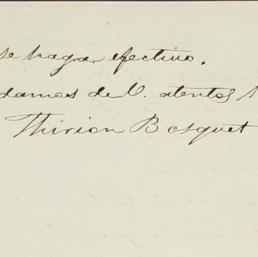 se haga efectivo.
damos de V. atentos
Thirion Bosquet